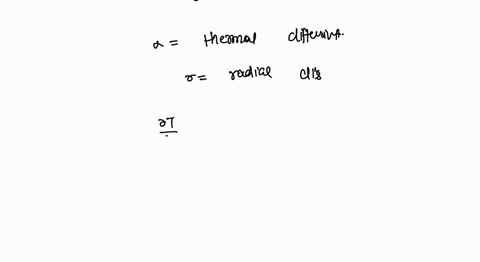 α = thermal diffusivit.
r = radial dis
∂T